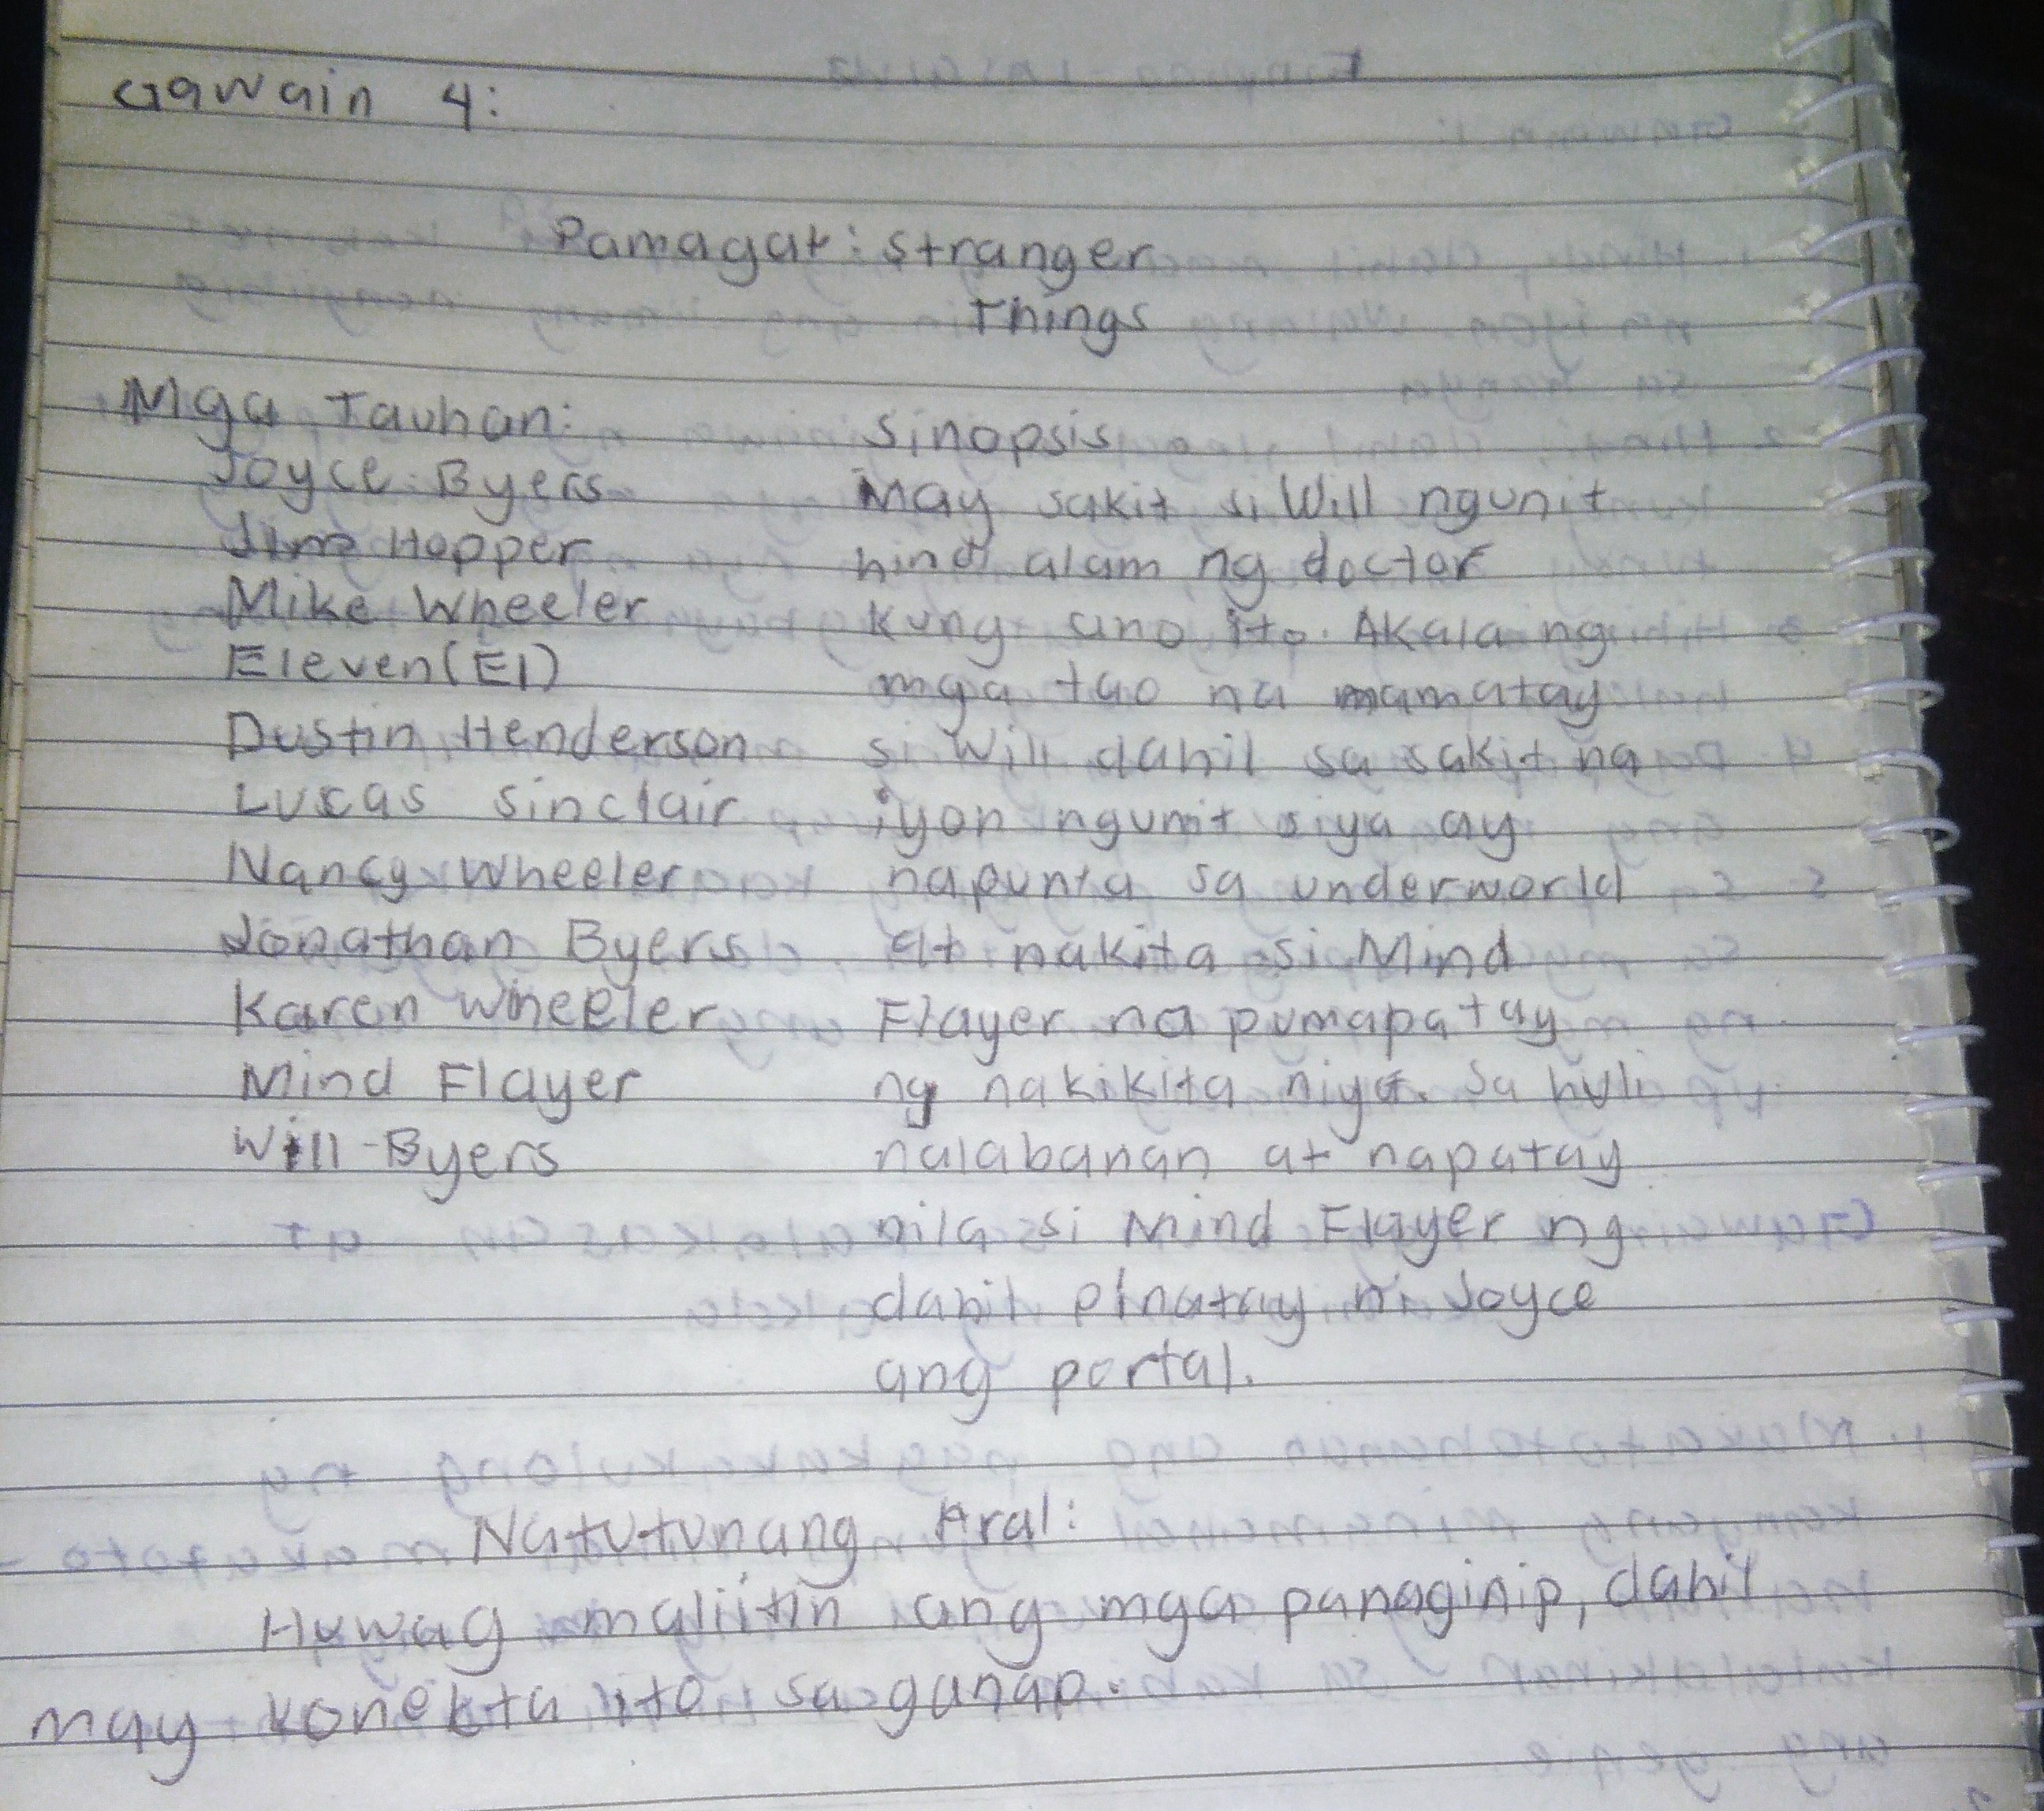 Gawain 4:
Pamagat: Stranger
Things
Mga Tauhan:
Joyce Byers
Jim Hopper
Mike Wheeler
Eleven(El)
Dustin Henderson
Lucas Sinclair
Nancy Wheeler
Jonathan Byers
Karen Wheeler
Mind Flayer
Will Byers
Sinopsis
May sakit si Will ngunit
hindi alam ng doctor
kung ano ito. Akala ng
mga tao na mamatay
si Will dahil sa sakit na
iyon ngunit siya ay
napunta sa underworld
at nakita si Mind
Flayer na pumapatay
ng nakikita niya. Sa huli
nalabanan at napatay
nila si Mind Flayer ng
dahil pinatay ni Joyce
ang portal.
Natutunang Aral:
Huwag maliitin ang mga panaginip, dahil
may konekta ito sa ganap.